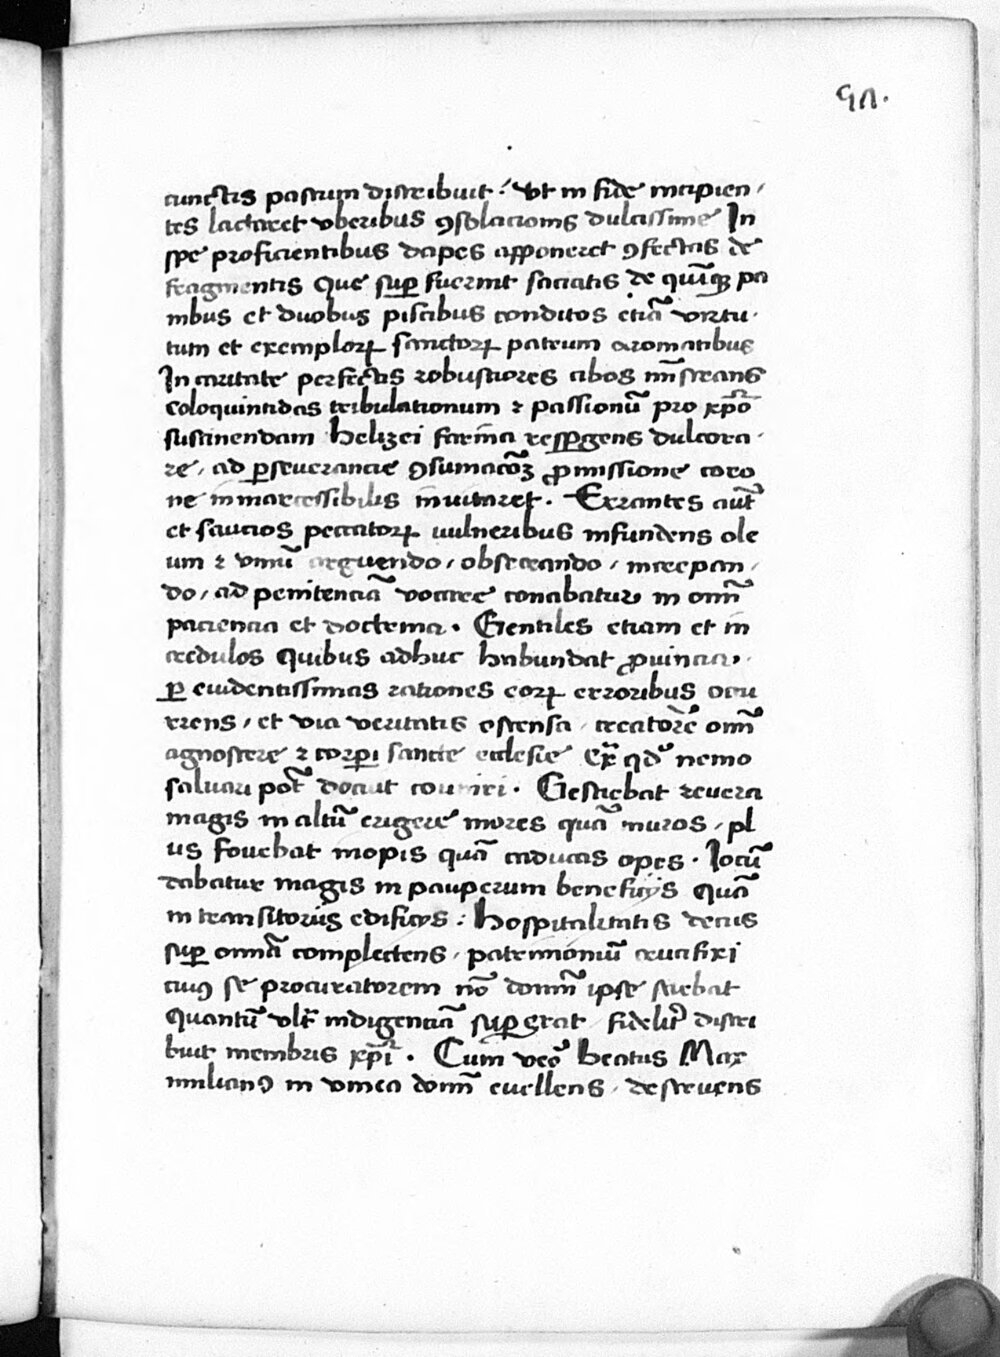 91.
cunctis pastum distribuit : vt in fide incipien,
tes lactaret vberibus ꝯsolacionis dulcissime In
spe proficientibus dapes apponeret ꝯfectas de
fragmentis Que sup fuerint saciatis de quīqꝫ pa
nibus et duobus piscibus conditos etiā virtu-
tum et exemploꝝ sanctoꝝ patrum aromatibus
In caritate perfectis robustiores cibos mīstrans
Coloquintidas tribulationum ⁊ passionū pro xp̄o
sustinendam Helizei farina respergens dulcora-
re, ad ꝑseuerancie ꝯsumacōꝫ ꝓmissione coro
ne inmarcessibilis inuitaret. Errantes aūt
et saucios peccatoꝝ uulneribus infundens ole
um ⁊ vinū arguendo, obsecrando, increpan,
do, ad penitenciā vocare conabatur in omī
paciencia et doctrina. Gentiles etiam et in
credulos Quibus adhuc habundat ꝓuincia,
ꝑ euidentissimas rationes eoꝝ erroribus occu
rrens, et via veritatis ostensa, creatorē omī
agnoscere ⁊ corpori sancte ecclesie Ex̄ qd̄ nemo
saluari pot̄ docuit couniri. Gestiebat reuera
magis in altū erigere mores quā muros, pl
us fouebat inopis quā caducas opes. Iocū
dabatur magis in pauperum beneficijs Quā
in transitorijs edificijs : Hospitalitatis decus
suꝑ omnia complectens, patrimoniū crucifixi
cuiꝯ se procuratorem nō domīn ipse sciebat
Quantū vlt̄ indigenciā suꝑerat fidelit̄ distri
buit membris xp̄i. Cum vēo beatus Max
imilianꝯ in vinea domī euellens, destruens